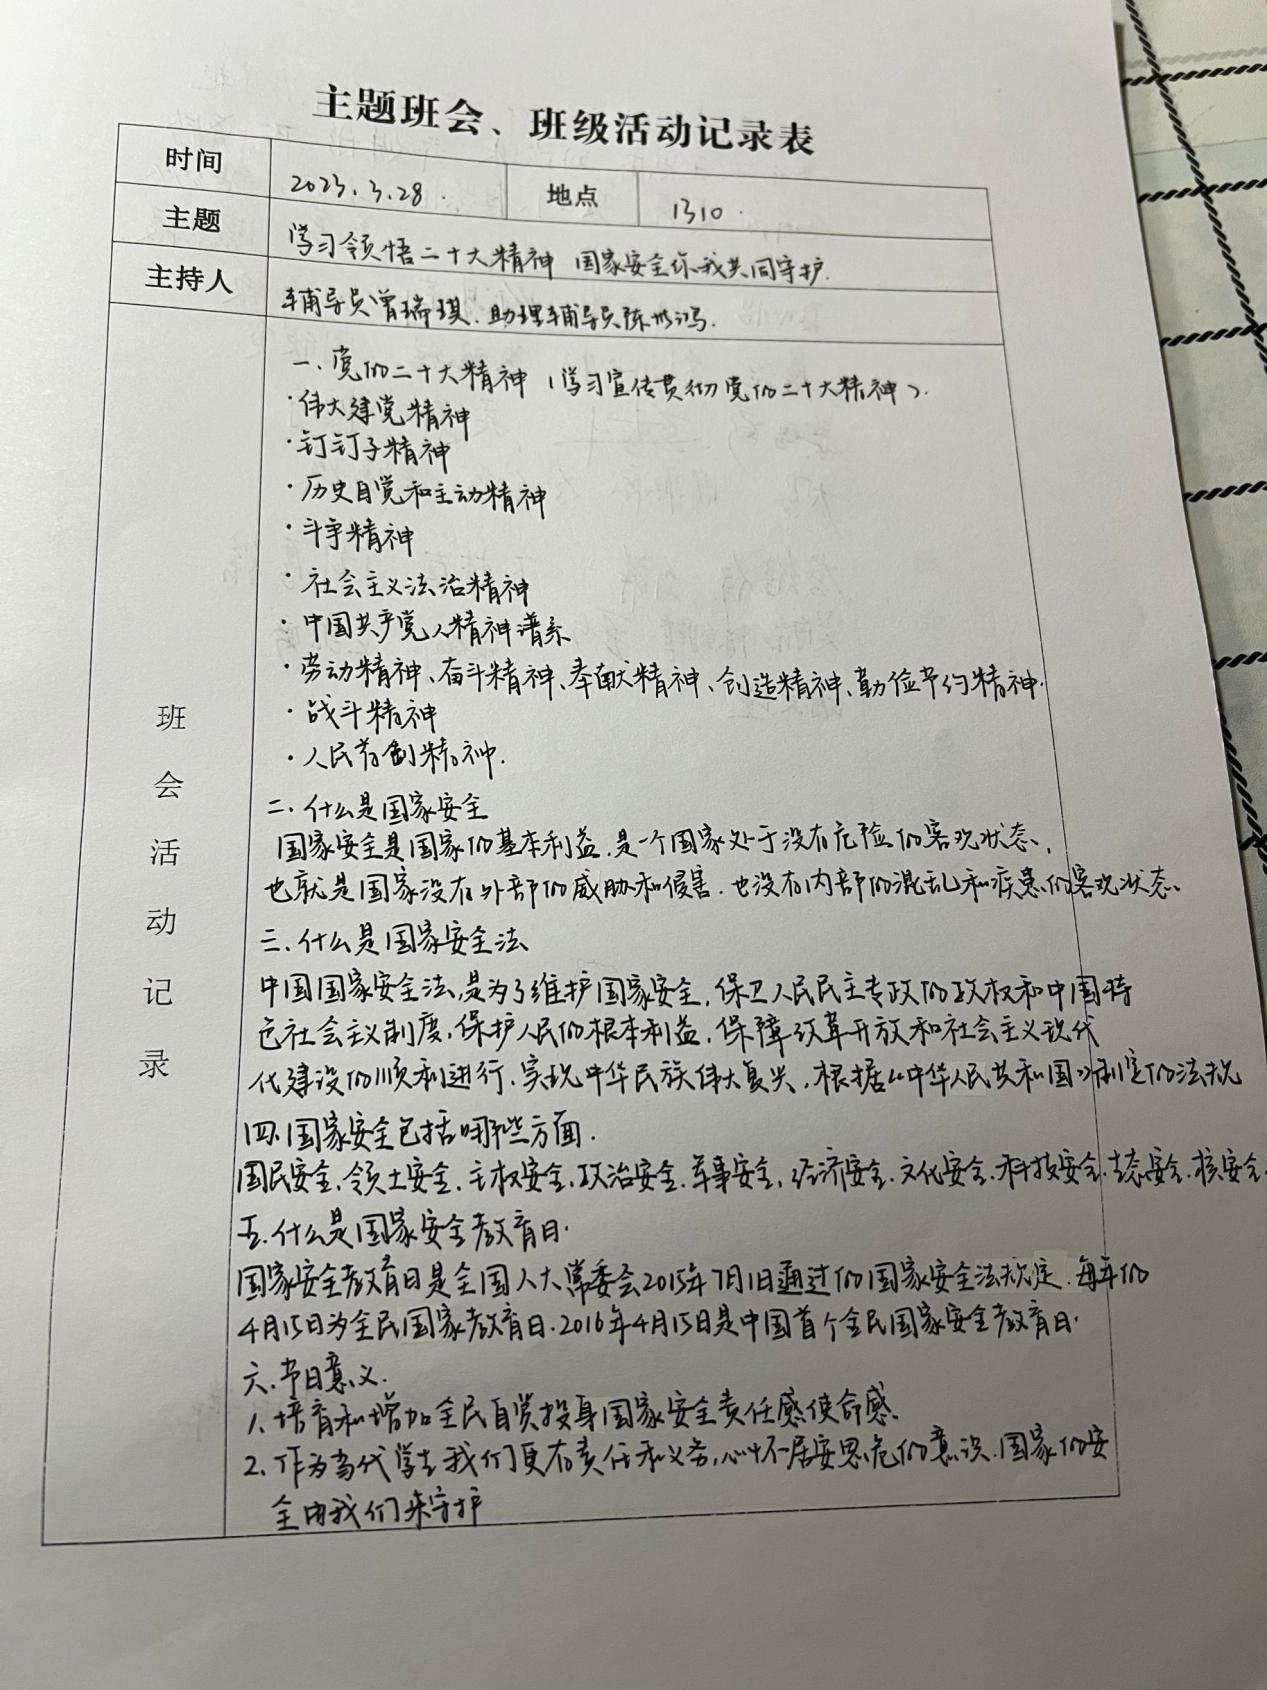 主题班会、班级活动记录表
时间 2023.3.28. 地点 1310.
主题 学习领悟二十大精神 国家安全你我共同守护.
主持人 辅导员曾瑞琪.助理辅导员陈 鸿.
班会活动记录
一.党的二十大精神（学习宣传贯彻党的二十大精神）.
·伟大建党精神
·钉钉子精神
·历史自觉和主动精神
·斗争精神
·社会主义法治精神
·中国共产党人精神谱系
·劳动精神、奋斗精神、奉献精神、创造精神、勤俭节约精神.
·战斗精神
·人民首创精神.
二.什么是国家安全
国家安全是国家的基本利益.是一个国家处于没有危险的客观状态,
也就是国家没有外部的威胁和侵害.也没有内部的混乱和疾患的客观状态、
三.什么是国家安全法
中国国家安全法,是为了维护国家安全,保卫人民民主专政的政权和中国特
色社会主义制度,保护人民的根本利益,保障改革开放和社会主义现代
代建设的顺利进行.实现中华民族伟大复兴,根据《中华人民共和国》制定的法规
四.国家安全包括哪些方面.
国民安全.领土安全.主权安全.政治安全.军事安全.经济安全.文化安全.科技安全.生态安全.核安全.
五.什么是国家安全教育日.
国家安全教育日是全国人大常委会2015年7月1日通过的国家安全法规定.每年的
4月15日为全民国家教育日.2016年4月15日是中国首个全民国家安全教育日.
六.节日意义.
1.培育和增加全民自觉投身国家安全责任感使命感.
2.作为当代学生我们更有责任和义务,心怀居安思危的意识.国家的安
全由我们来守护